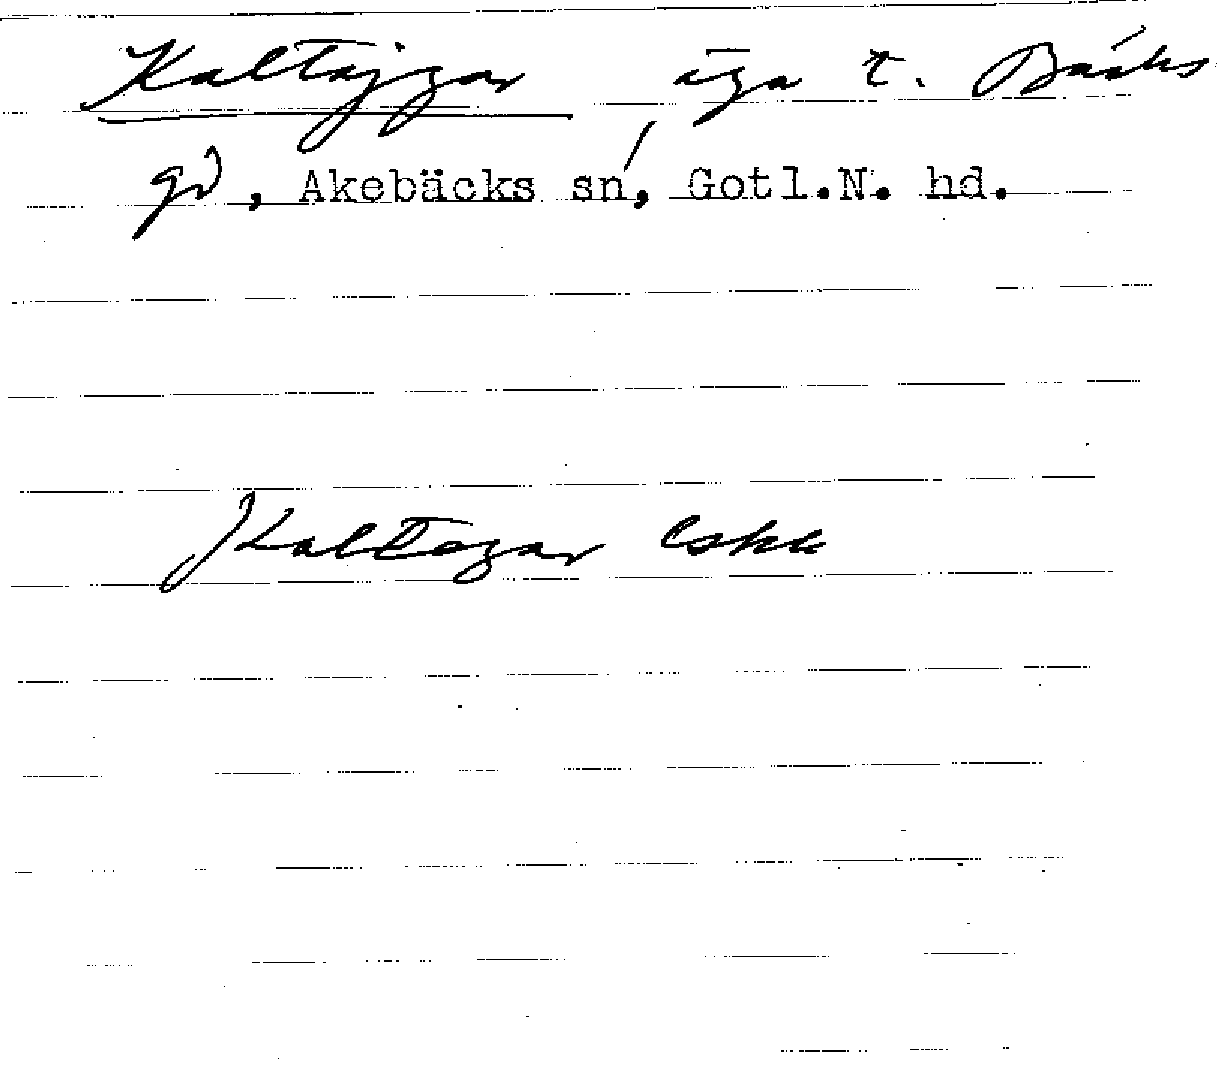 Kaltajgar äga t. Bäcks
gd, Akebäcks sn, Gotl.N. hd.
Kaltegar Eskh